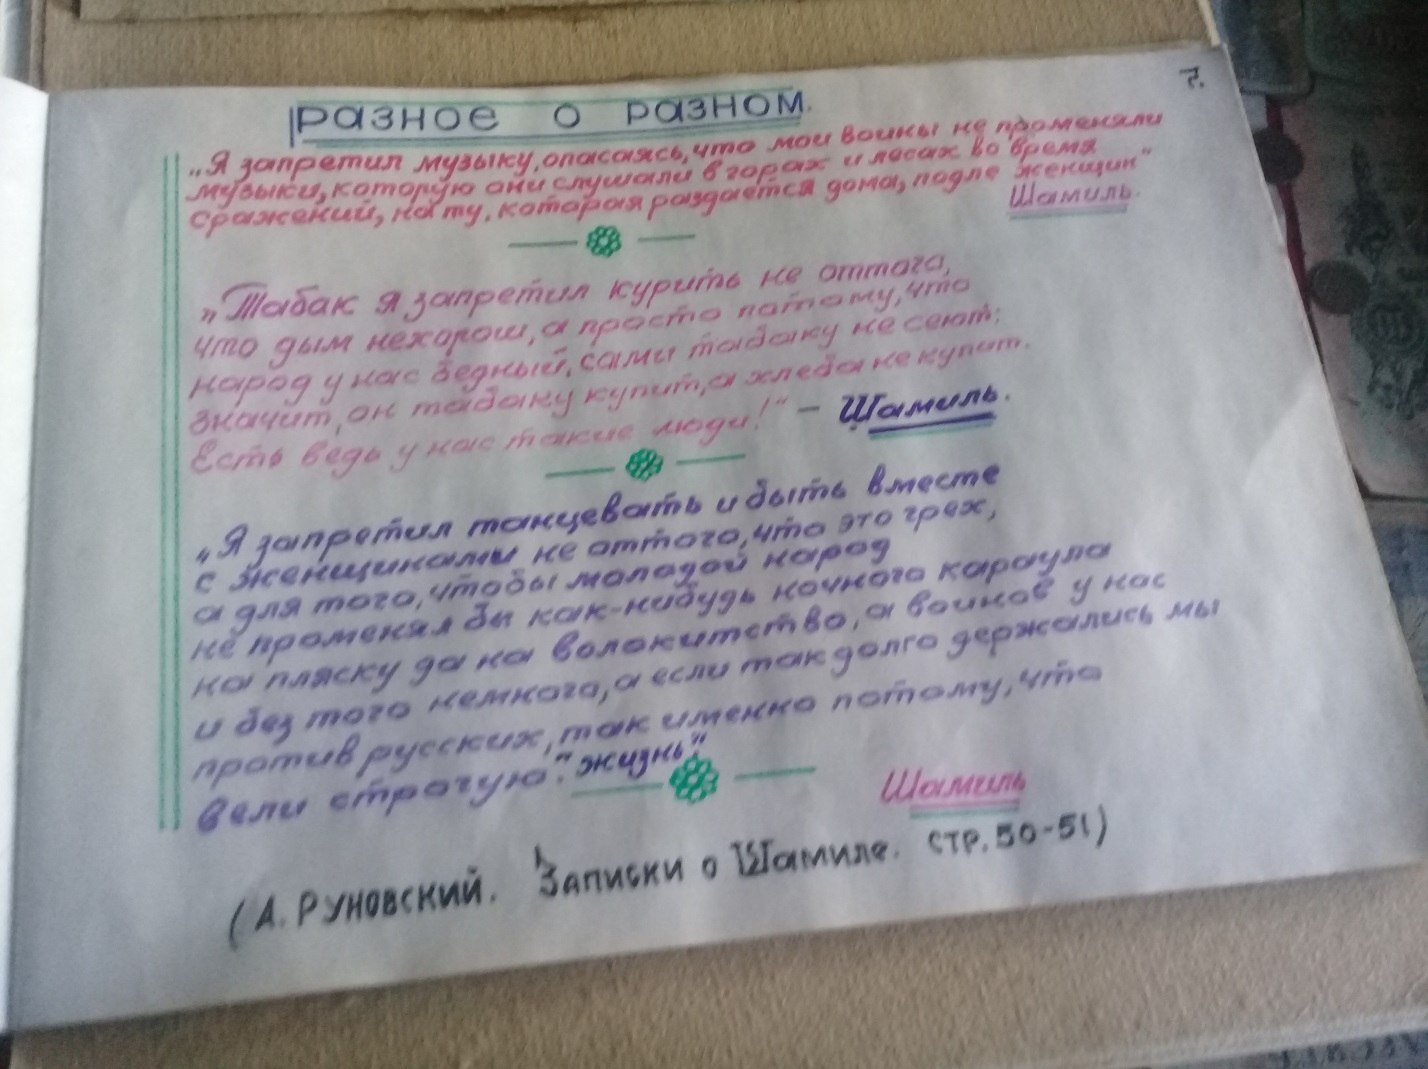 7.
РАЗНОЕ О РАЗНОМ.
„Я запретил музыку, опасаясь, что мои воины не променяли
музыки, которую они слушали в горах и лесах во время
сражений, на ту, которая раздается дома, подле женщин"
Шамиль.
„Табак я запретил курить не оттого,
что дым нехорош, а просто потому, что
народ у нас бедный, сами табаку не сеют:
значит, он табаку купит, а хлеба не купит.
Есть ведь у нас такие люди!" – Шамиль.
„Я запретил танцевать и быть вместе
с женщинами не оттого, что это грех,
а для того, чтобы молодой народ
не променял бы как-нибудь ночного караула
на пляску да на волокитство, а воинов у нас
и без того немного, а если так долго держались мы
против русских, так именно потому, что
вели строгую "жизнь"
Шамиль
(А. РУНОВСКИЙ. Записки о Шамиле. стр. 50-51)